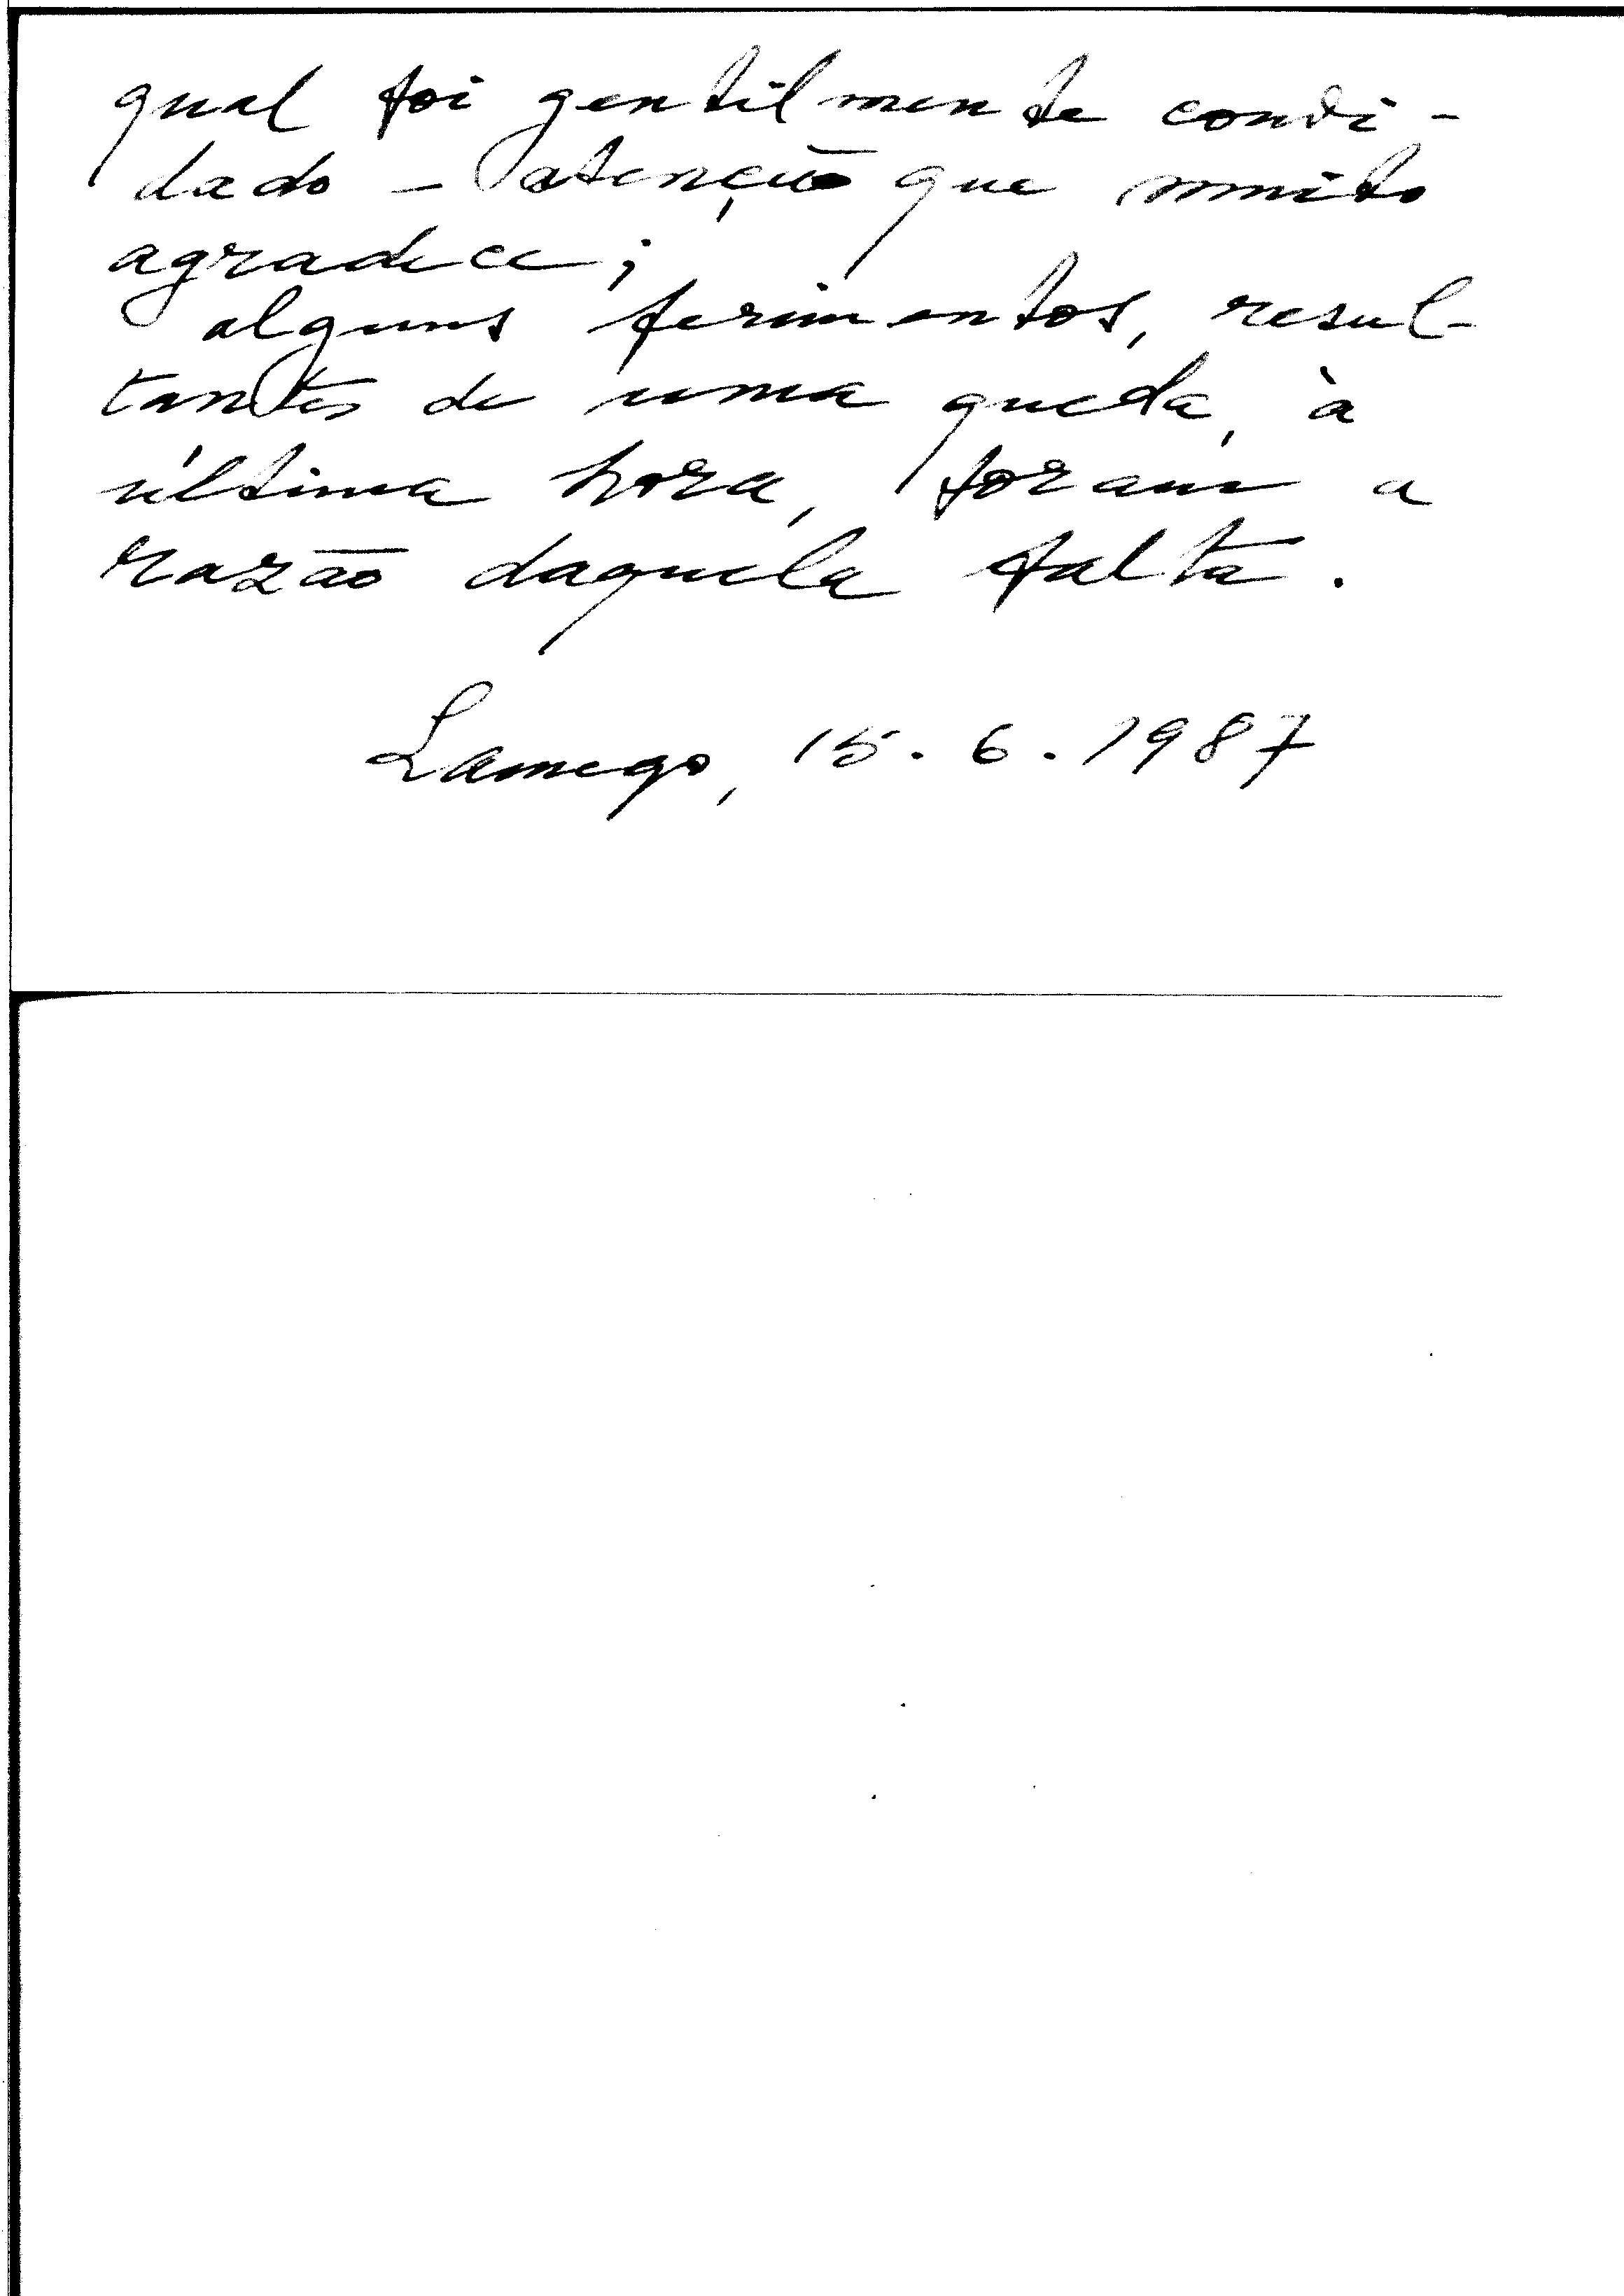 qual foi gentilmente convi-
dado - atenção que muito
agradece;
alguns ferimentos, resul-
tantes de uma queda, à
última hora, foram a
razão daquela falta.
Lamego, 15.6.1987